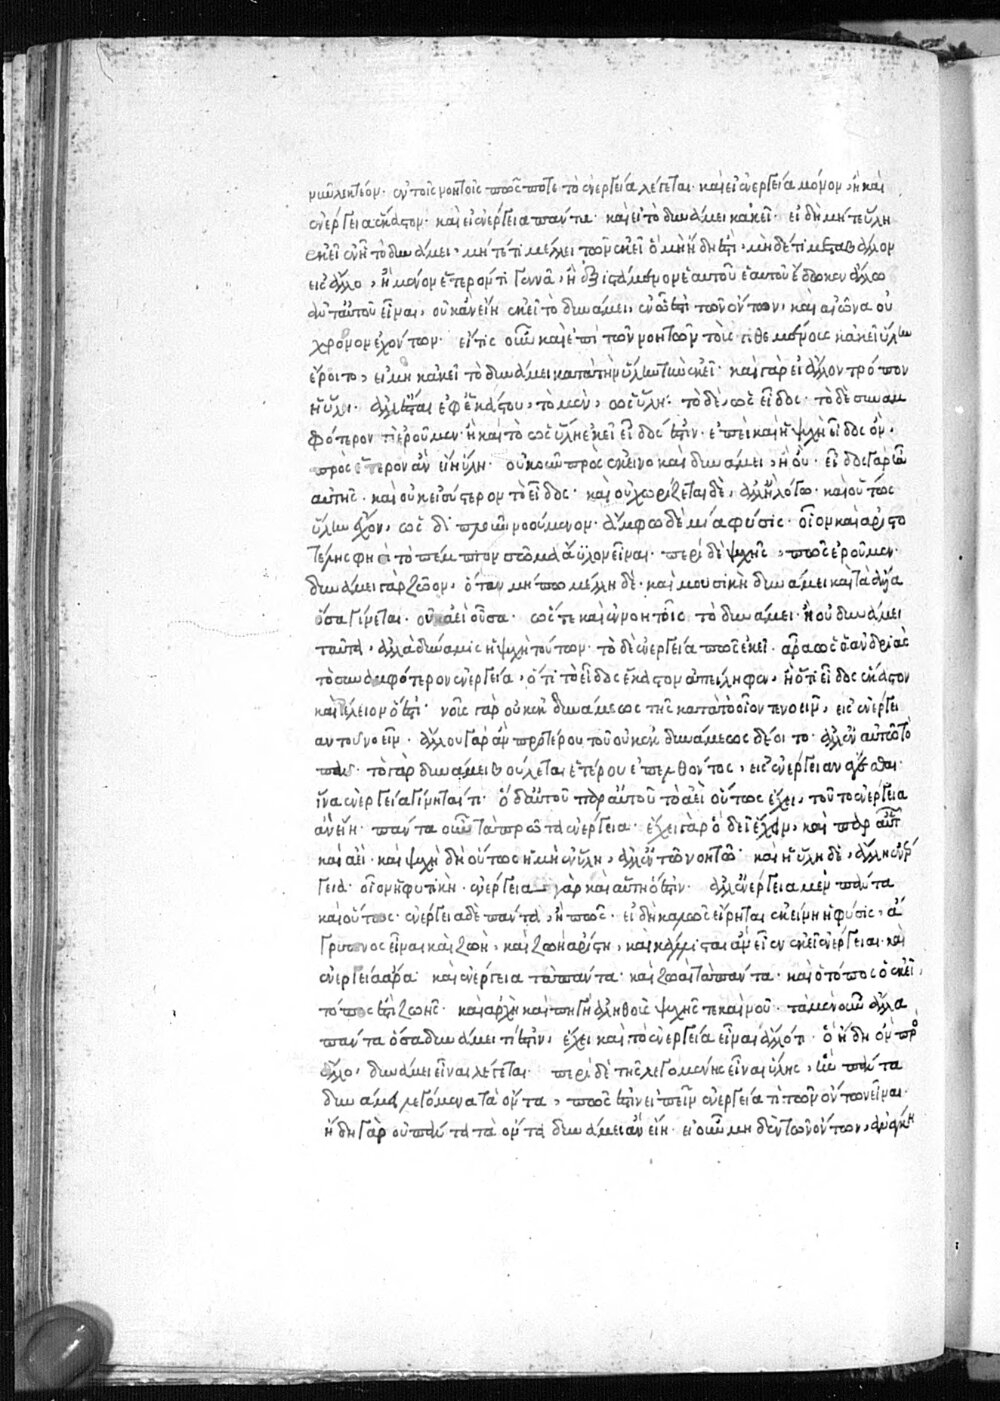 νῦν λεκτέον· ἐν τοῖς νοητοῖς πῶς ποτε τὸ ἐνεργεία λέγεται· καὶ εἰ ἐνεργεία μόνον, ἢ καὶ
ἐνέργεια ἕκαστον· καὶ εἰ ἐνέργεια πάντα· καὶ εἰ τὸ δυνάμει κἀκεῖ· εἰ δὴ μήτε ὕλη
ἐκεῖ ἐν ᾗ τὸ δυνάμει, μήτέ τι μέλλει τῶν ἐκεῖ ὃ μὴ ἤδη ἐστί, μὴ δέ τι μεταβάλλον
εἰς ἄλλο, ἢ μένον ἕτερόν τι γεννᾷ, ἢ ἐξιστάμενον ἑαυτοῦ ἑαυτοῦ ἔδωκεν ἄλλω
ἀντ αὐτοῦ εἶναι, οὐκ ἂν εἴη ἐκεῖ τὸ δυνάμει, ἐν ᾧ ἐστι τῶν ὄντων, καὶ αἰῶνα οὐ
χρόνον ἐχόντων· εἴ τις οὖν καὶ ἐπὶ τῶν νοητῶν τοὺς τιθεμένους κἀκεῖ ὕλην
ἔροιτο, εἰ μὴ κἀκεῖ τὸ δυνάμει κατὰ τὴν ὕλην τὴν ἐκεῖ· καὶ γὰρ εἰ ἄλλον τρόπον
ἡ ὕλη· ἀλλ ἔσται ἐφ ἑκάστου, τὸ μὲν, ὡς ὕλη· τὸ δὲ, ὡς εἶδος· τὸ δὲ συναμ
φότερον τί ἐροῦμεν· ἢ καὶ τὸ ὡς ὕλη ἐκεῖ εἶδός ἐστιν· ἐπεὶ καὶ ἡ ψυχὴ εἶδος ὂν,
πρὸς ἕτερον ἂν εἴη ὕλη· οὐκοῦν πρὸς ἐκεῖνο καὶ δυνάμει, ἢ οὔ· εἶδος γὰρ ἦν
αὐτῆς· καὶ οὐκ εἰσύστερον τὸ εἶδος· καὶ οὐ χωρίζεται δὲ, ἀλλ ἢ λόγω· καὶ οὕτως
ὕλην ἔχον, ὡς διπλοῦν νοούμενον· ἄμφω δὲ μία φύσις· οἷον καὶ ἀριστο
τέλης φησὶ τὸ πέμπτον σῶμα ἄϋλον εἶναι· περὶ δὲ ψυχῆς, πῶς ἐροῦμεν·
δυνάμει γὰρ ζῶον, ὅταν μήπω μέλλη δὲ· καὶ μουσικὴ δυνάμει καὶ τὰ ἄλλα
ὅσα γίνεται· οὐκ ἀεὶ οὖσα· ὥστε καὶ ἐν νοητοῖς τὸ δυνάμει· ἢ οὐ δυνάμει
ταῦτα, ἀλλὰ δύναμις ἡ ψυχὴ τούτων· τὸ δὲ ἐνεργεία πῶς ἐκεῖ· ἆρα ὡς ὁ ἀνδριὰς
τὸ συναμφότερον ἐνεργεία, ὅτι τὸ εἶδος ἕκαστον ἀπείληφεν, ἢ ὅτι εἶδος ἕκαστον
καὶ τέλειον ὅ ἐστι· νοῦς γὰρ οὐκ ἐκ δυνάμεως τῆς κατὰ τὸ οἷόν τε νοεῖν, εἰς ἐνέργει
αν τοῦ νοεῖν· ἄλλου γὰρ ἂν προτέρου τοῦ οὐκ ἐκ δυνάμεως δέοιτο· ἀλλ ἐν αὐτῶ τὸ
πᾶν· τὸ γὰρ δυνάμει βούλεται ἑτέρου ἐπελθόντος, εἰς ἐνέργειαν ἄγεσθαι·
ἵνα ἐνεργεία γίνηταί τι· ὃ δ αὐτοῦ παρ αὑτοῦ τὸ ἀεὶ οὕτως ἔχει, τοῦτο ἐνέργεια
ἂν εἴη· πάντα οὖν τὰ πρῶτα ἐνέργεια· ἔχει γὰρ ὃ δεῖ ἔχειν, καὶ παρ αὑτ
καὶ ἀεί· καὶ ψυχὴ δὴ οὕτως ἡ μὴ ἐν ὕλη, ἀλλ ἐν τῶ νοητῶ· καὶ ἡ ὕλη δὲ, ἄλλη ἐνέρ
γεια· οἷον ἡ φυτική· ἐνέργεια γὰρ καὶ αὕτη ὅ ἐστιν· ἀλλ ἐνέργεια μὲν πάντα
καὶ οὕτως· ἐνέργεια δὲ πάντα, ἢ πῶς· εἰ δὴ καλῶς εἴρηται ἐκείνη ἡ φύσις, ἄ
γρυπνος εἶναι καὶ ζωὴ, καὶ ζωὴ ἀρίστη, καὶ κάλλισται ἂν εἶεν ἐκεῖ ἐνέργειαι· καὶ
ἐνεργεία ἄρα καὶ ἐνέργεια τὰ πάντα· καὶ ζωαὶ τὰ πάντα· καὶ ὁ τόπος ὁ ἐκεῖ,
τόπος ἐστὶ ζωῆς· καὶ ἀρχὴ καὶ πηγὴ ἀληθοῦς ψυχῆς τε καὶ νοῦ· τὰ μὲν οὖν ἄλλα
πάντα ὅσα δυνάμει τί ἐστιν, ἔχει καὶ τὸ ἐνεργεία εἶναι ἄλλό τι· ὃ ἤδη ὂν πρὸ
ἄλλο, δυνάμει εἶναι λέγεται· περὶ δὲ τῆς λεγομένης εἶναι ὕλης, ἣν πάντα
δυνάμει λέγομεν τὰ ὄντα, πῶς ἐστιν εἰπεῖν ἐνεργεία τί τῶν ὄντων εἶναι·
ἤδη γὰρ οὐ πάντα τὰ ὄντα δυνάμει ἂν εἴη· εἰ οὖν μηδὲν τῶν ὄντων, ἀνάγκη